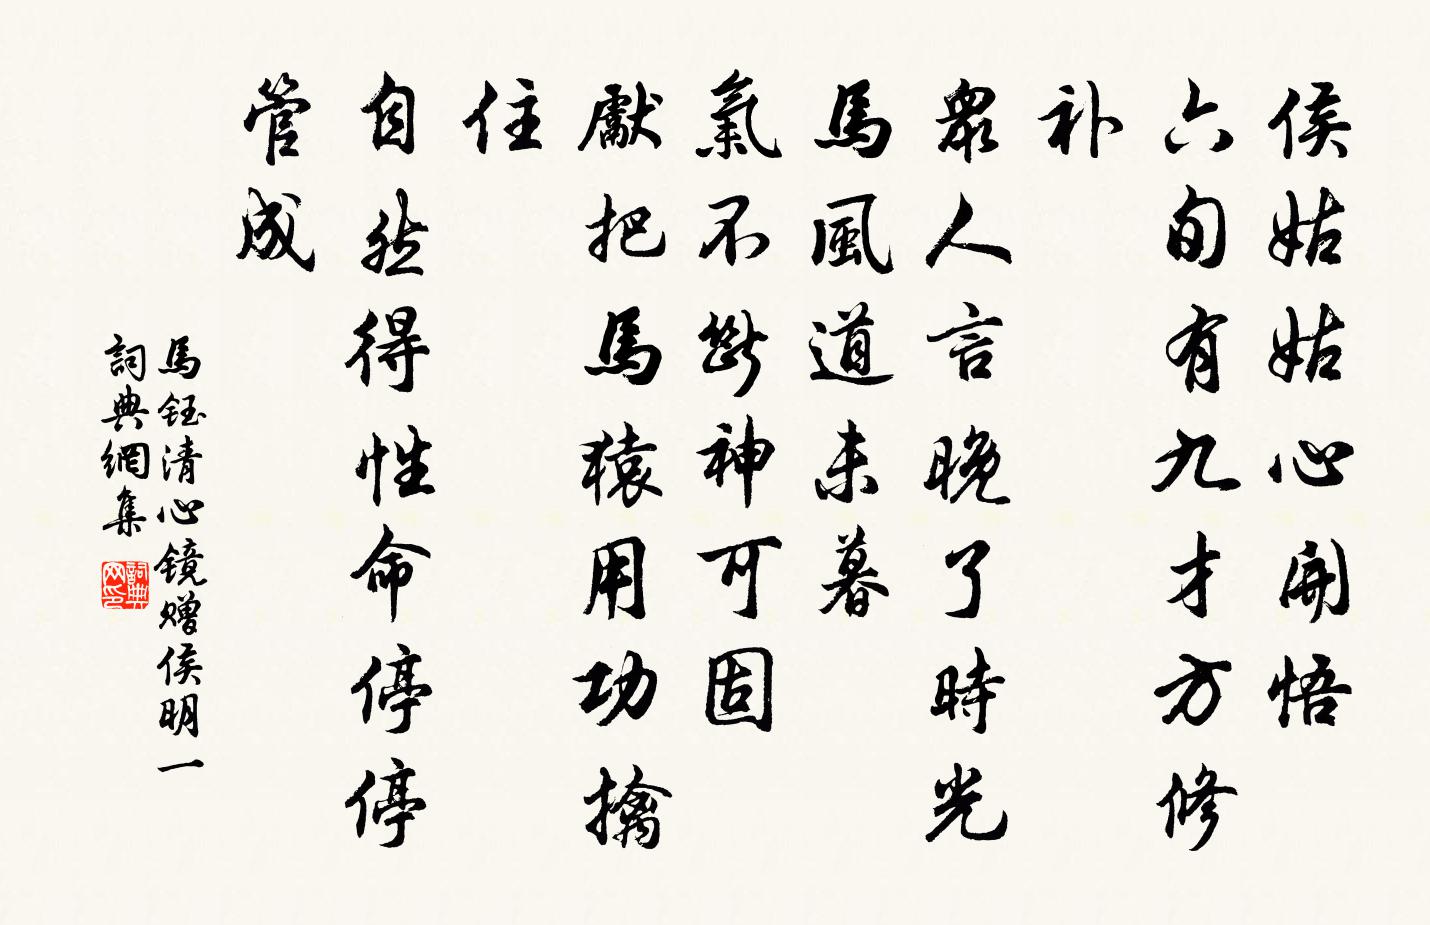 侯姑姑心開悟
六旬有九才方修
补
衆人言晚了時光
馬風道未暮
氣不斷神可固
獻把馬猿用功擒
住
自然得性命停停
管成
馬鈺清心鏡赠侯明一
詞典網集
詞典网印